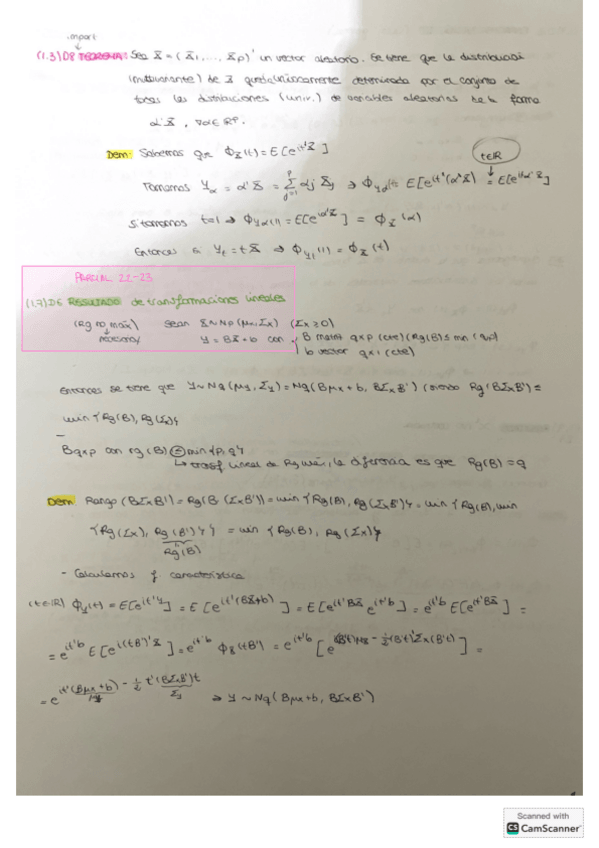 import
(1.3) D8 TEOREMA: Sea X = (X1, ..., Xp)' un vector aleatorio. Se tiene que la distribución
(multivariante) de X queda únicamente determinada por el conjunto de
todas las distribuciones (univ.) de variables aleatorias de la forma
α'X, ∀α∈RP.
Dem: Sabemos que ΦX(t) = E[e^{it'X}]
t∈R
Tomamos Yα = α'X = Σ_{j=1}^{p} αj Xj ⇒ ΦYα(t) = E[e^{it'(α'X)}] = E[e^{itα'X}]
Si tomamos t=1 ⇒ ΦYα(1) = E[e^{iα'X}] = ΦX(α)
Entonces si Yt = tX ⇒ ΦYt(1) = ΦX(t)
PARCIAL 22-23
(1.7) D6 RESULTADO de transformaciones lineales
(Rg no máx) Sean X~Np(μx, Σx) (Σx≥0)
necesariam Y = BX+b con { B matriz qxp (cte) (Rg(B)≤min(q,p))
b vector qx1 (cte)
Entonces se tiene que Y~Nq(μy, Σy) = Nq(Bμx+b, BΣxB') (siendo Rg(BΣxB') =
min{Rg(B), Rg(Σx)}
B qxp con rg(B) = min{p,q}
↳ transf lineal de Rg máx, la diferencia es que Rg(B) = q
Dem: Rango(BΣxB') = Rg(B(ΣxB')) = min{Rg(B), Rg(ΣxB')} = min{Rg(B), min
{Rg(Σx), Rg(B')}} = min{Rg(B), Rg(Σx)}
Rg(B)
- Calculamos f característica
(t∈R) ΦY(t) = E[e^{it'Y}] = E[e^{it'(BX+b)}] = E[e^{it'BX} e^{it'b}] = e^{it'b} E[e^{it'BX}] =
= e^{it'b} E[e^{i(tB')'X}] = e^{it'b} ΦX(tB') = e^{it'b} [e^{i(B't)'μx - 1/2 (B't)'Σx(B't)}] =
= e^{it'(Bμx+b) - 1/2 t'(BΣxB')t} ⇒ Y~Nq(Bμx+b, BΣxB')
μy Σy
Scanned with
CS CamScanner